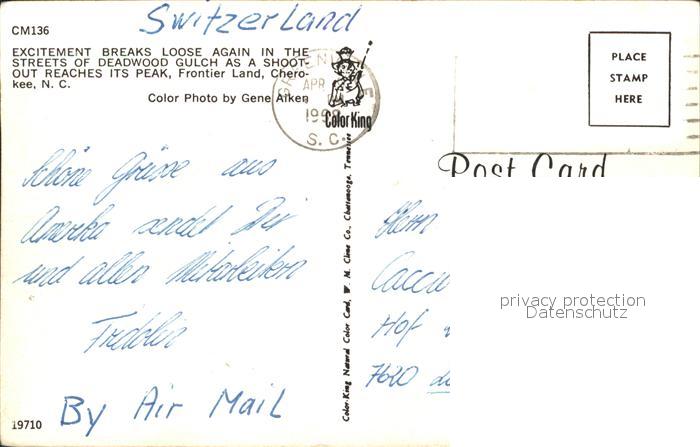 Switzerland
CM136
EXCITEMENT BREAKS LOOSE AGAIN IN THE
STREETS OF DEADWOOD GULCH AS A SHOOT-
OUT REACHES ITS PEAK, Frontier Land, Chero-
kee, N. C.
Color Photo by Gene Aiken
APR
S. C.
Color King
PLACE
STAMP
HERE
Post Card
Schöne Grüsse aus
Amerika sendet Dir
und allen Mitarbeitern
Fridolin
By Air Mail
19710
Color-King Natural Color Card, W. M. Cline Co., Chattanooga, Tennessee
Herrn
Hof
7620
privacy protection
Datenschutz